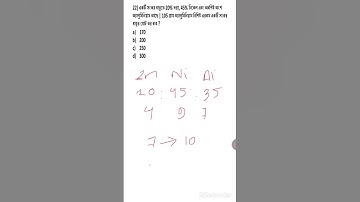 22) একটি সংকর ধাতুতে 20% দস্তা, 45% নিকেল এবং অবশিষ্ট অংশ
অ্যালুমিনিয়াম আছে | 105 গ্রাম অ্যালুমিনিয়াম বিশিষ্ট এরকম একটি সংকর
ধাতুর মোট ভর কত ?
a) 170
b) 200
c) 250
d) 300
Zn Ni Al
20 : 45 : 35
4 9 7
7 → 10